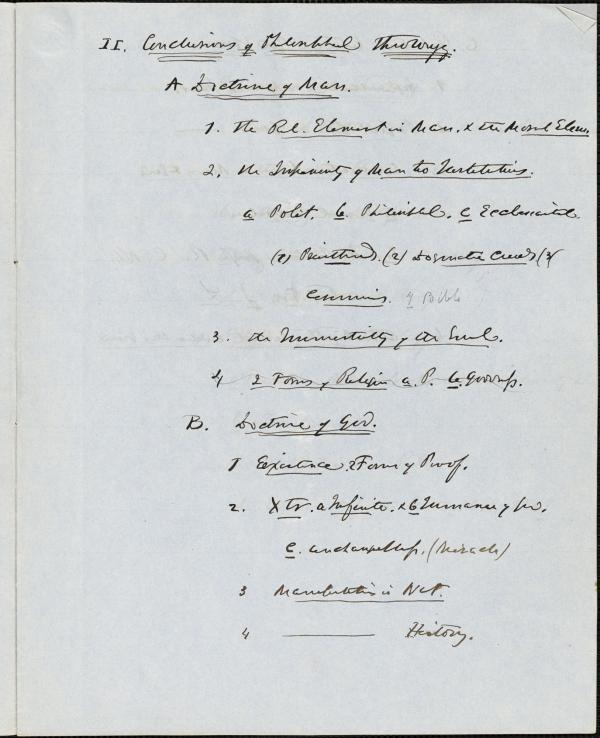 II. Conclusions of Philosophical Theology.
A Doctrine of Man.
1. the Rel. Element in Man, & the Moral Elem.
2. the Superiority of Man to Institutions.
a Polit. b. Philosophcl. c Ecclesiastcl
(1) Priesthood. (2) Dogmatic Creeds (3)
4 Bible
3. the Immortality of the Soul.
4 2 Forms of Religion a. P. b. Goodness.
B. Doctrine of God.
1 Existence. 2 Forms of Proof.
2. Xtr. a Infinite. & b Immanence of
c. unchangeableness. (Miracles)
3 Manifestation in Nat.
4 ——— History.